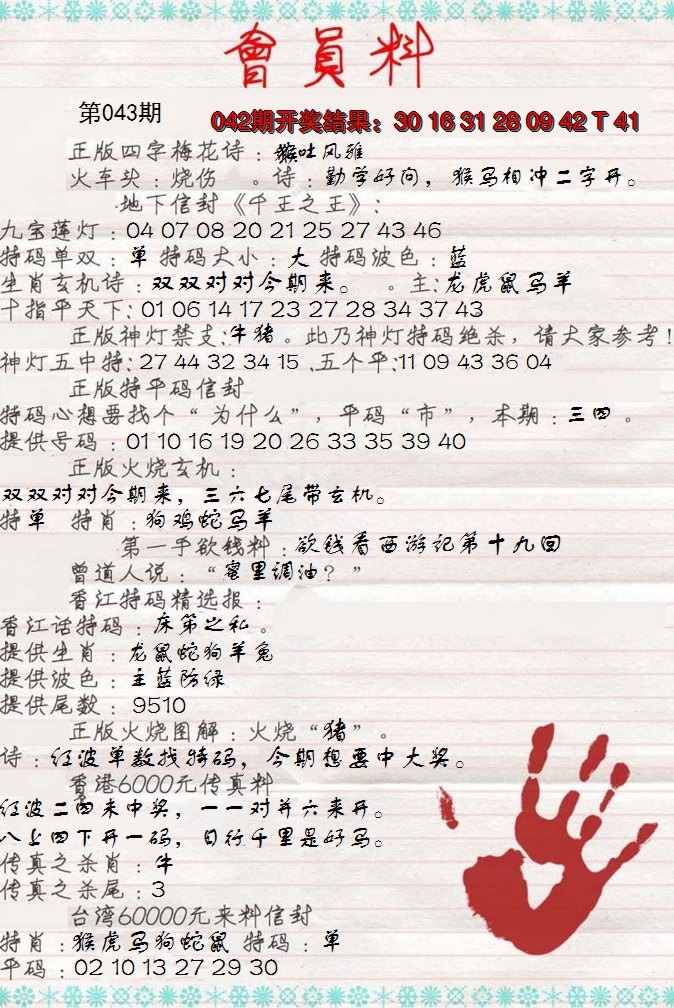 會員料
第043期
042期开奖结果：30 16 31 28 09 42 T 41
正版四字梅花诗：猴吐风雅
火车头：烧伤 。诗：勤学好问，猴马相冲二字开。
地下信封《千王之王》：
九宝莲灯：04 07 08 20 21 25 27 43 46
特码单双：单 特码大小：大 特码波色：蓝
生肖玄机诗：双双对对今期来。 。主：龙虎鼠马羊
十指平天下：01 06 14 17 23 27 28 34 37 43
正版神灯禁支：牛猪。此乃神灯特码绝杀，请大家参考！
神灯五中特：27 44 32 34 15 .五个平：11 09 43 36 04
正版特平码信封
特码心想要找个“为什么”，平码“市”，本期：三四。
提供号码：01 10 16 19 20 26 33 35 39 40
正版火烧玄机：
双双对对今期来，三六七尾带玄机。
特单 特肖：狗鸡蛇马羊
第一手欲钱料：欲钱看西游记第十九回
曾道人说：“蜜里调油？”
香江特码精选报：
香江话特码：床笫之私。
提供生肖：龙鼠蛇狗羊兔
提供波色：主蓝防绿
提供尾数：9510
正版火烧图解：火烧“猪”。
诗：红波单数找特码，今期想要中大奖。
香港6000元传真料
红波二四未中奖，一一对并六来开。
八上四下开一码，日行千里是好马。
传真之杀肖：牛
传真之杀尾：3
台湾60000元来料信封
特肖：猴虎马狗蛇鼠 特码：单
平码：02 10 13 27 29 30